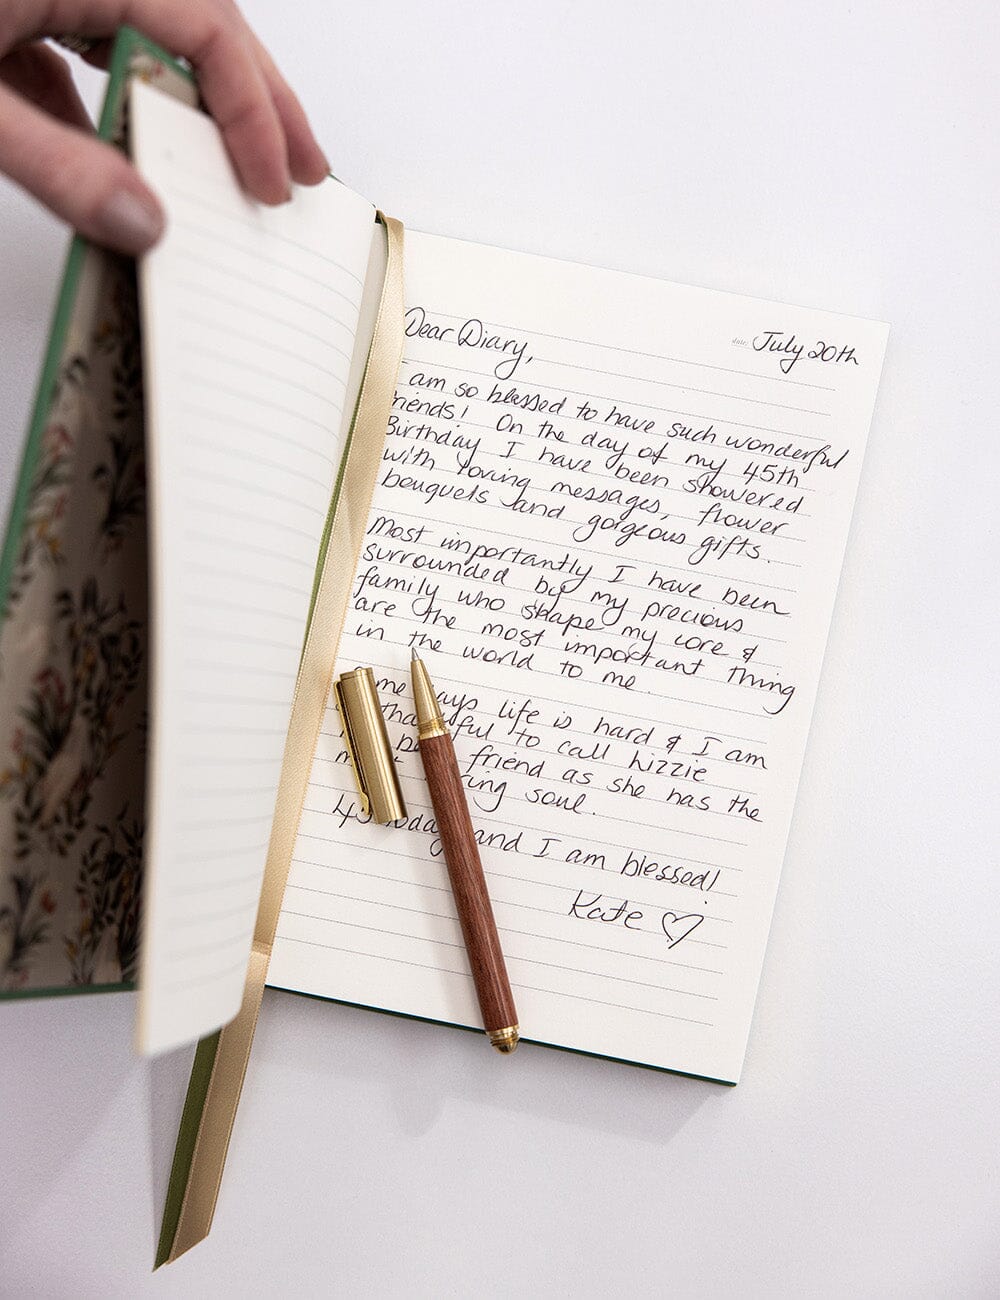 date: July 20th
Dear Diary,
am so blessed to have such wonderful
riends! On the day of my 45th
Birthday I have been showered
with loving messages, flower
bouquets and gorgeous gifts.
Most importantly I have been
surrounded by my precious
family who shape my core &
are the most important thing
in the world to me.
me days life is hard & I am
tha ful to call Lizzie
friend as she has the
ring soul.
45 today and I am blessed!
Kate ♡